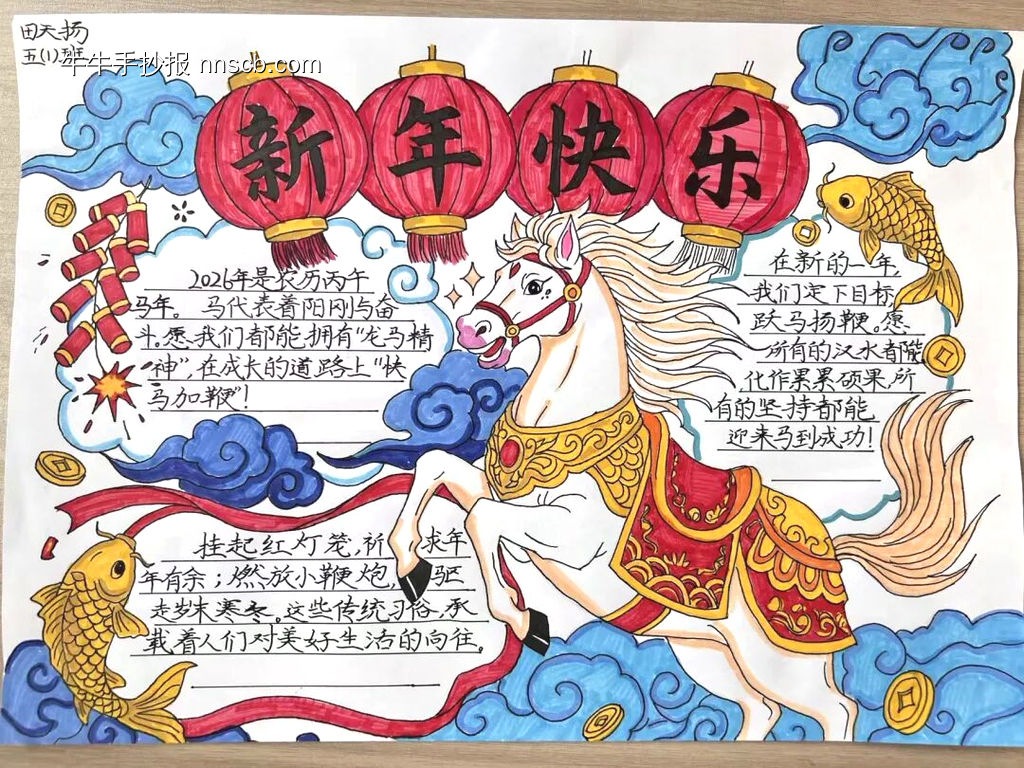 田天扬
五(1)班
牛牛手抄报 nnscb.com
新年快乐
2026年是农历丙午
马年。马代表着阳刚与奋
斗。愿我们都能拥有“龙马精
神”，在成长的道路上“快
马加鞭”！
在新的一年，
我们定下目标，
跃马扬鞭。愿
所有的汉水都能
化作累累硕果，所
有的坚持都能
迎来马到成功！
挂起红灯笼，祈求年
年有余；燃放小鞭炮，驱
走岁末寒冬。这些传统习俗，承
载着人们对美好生活的向往。